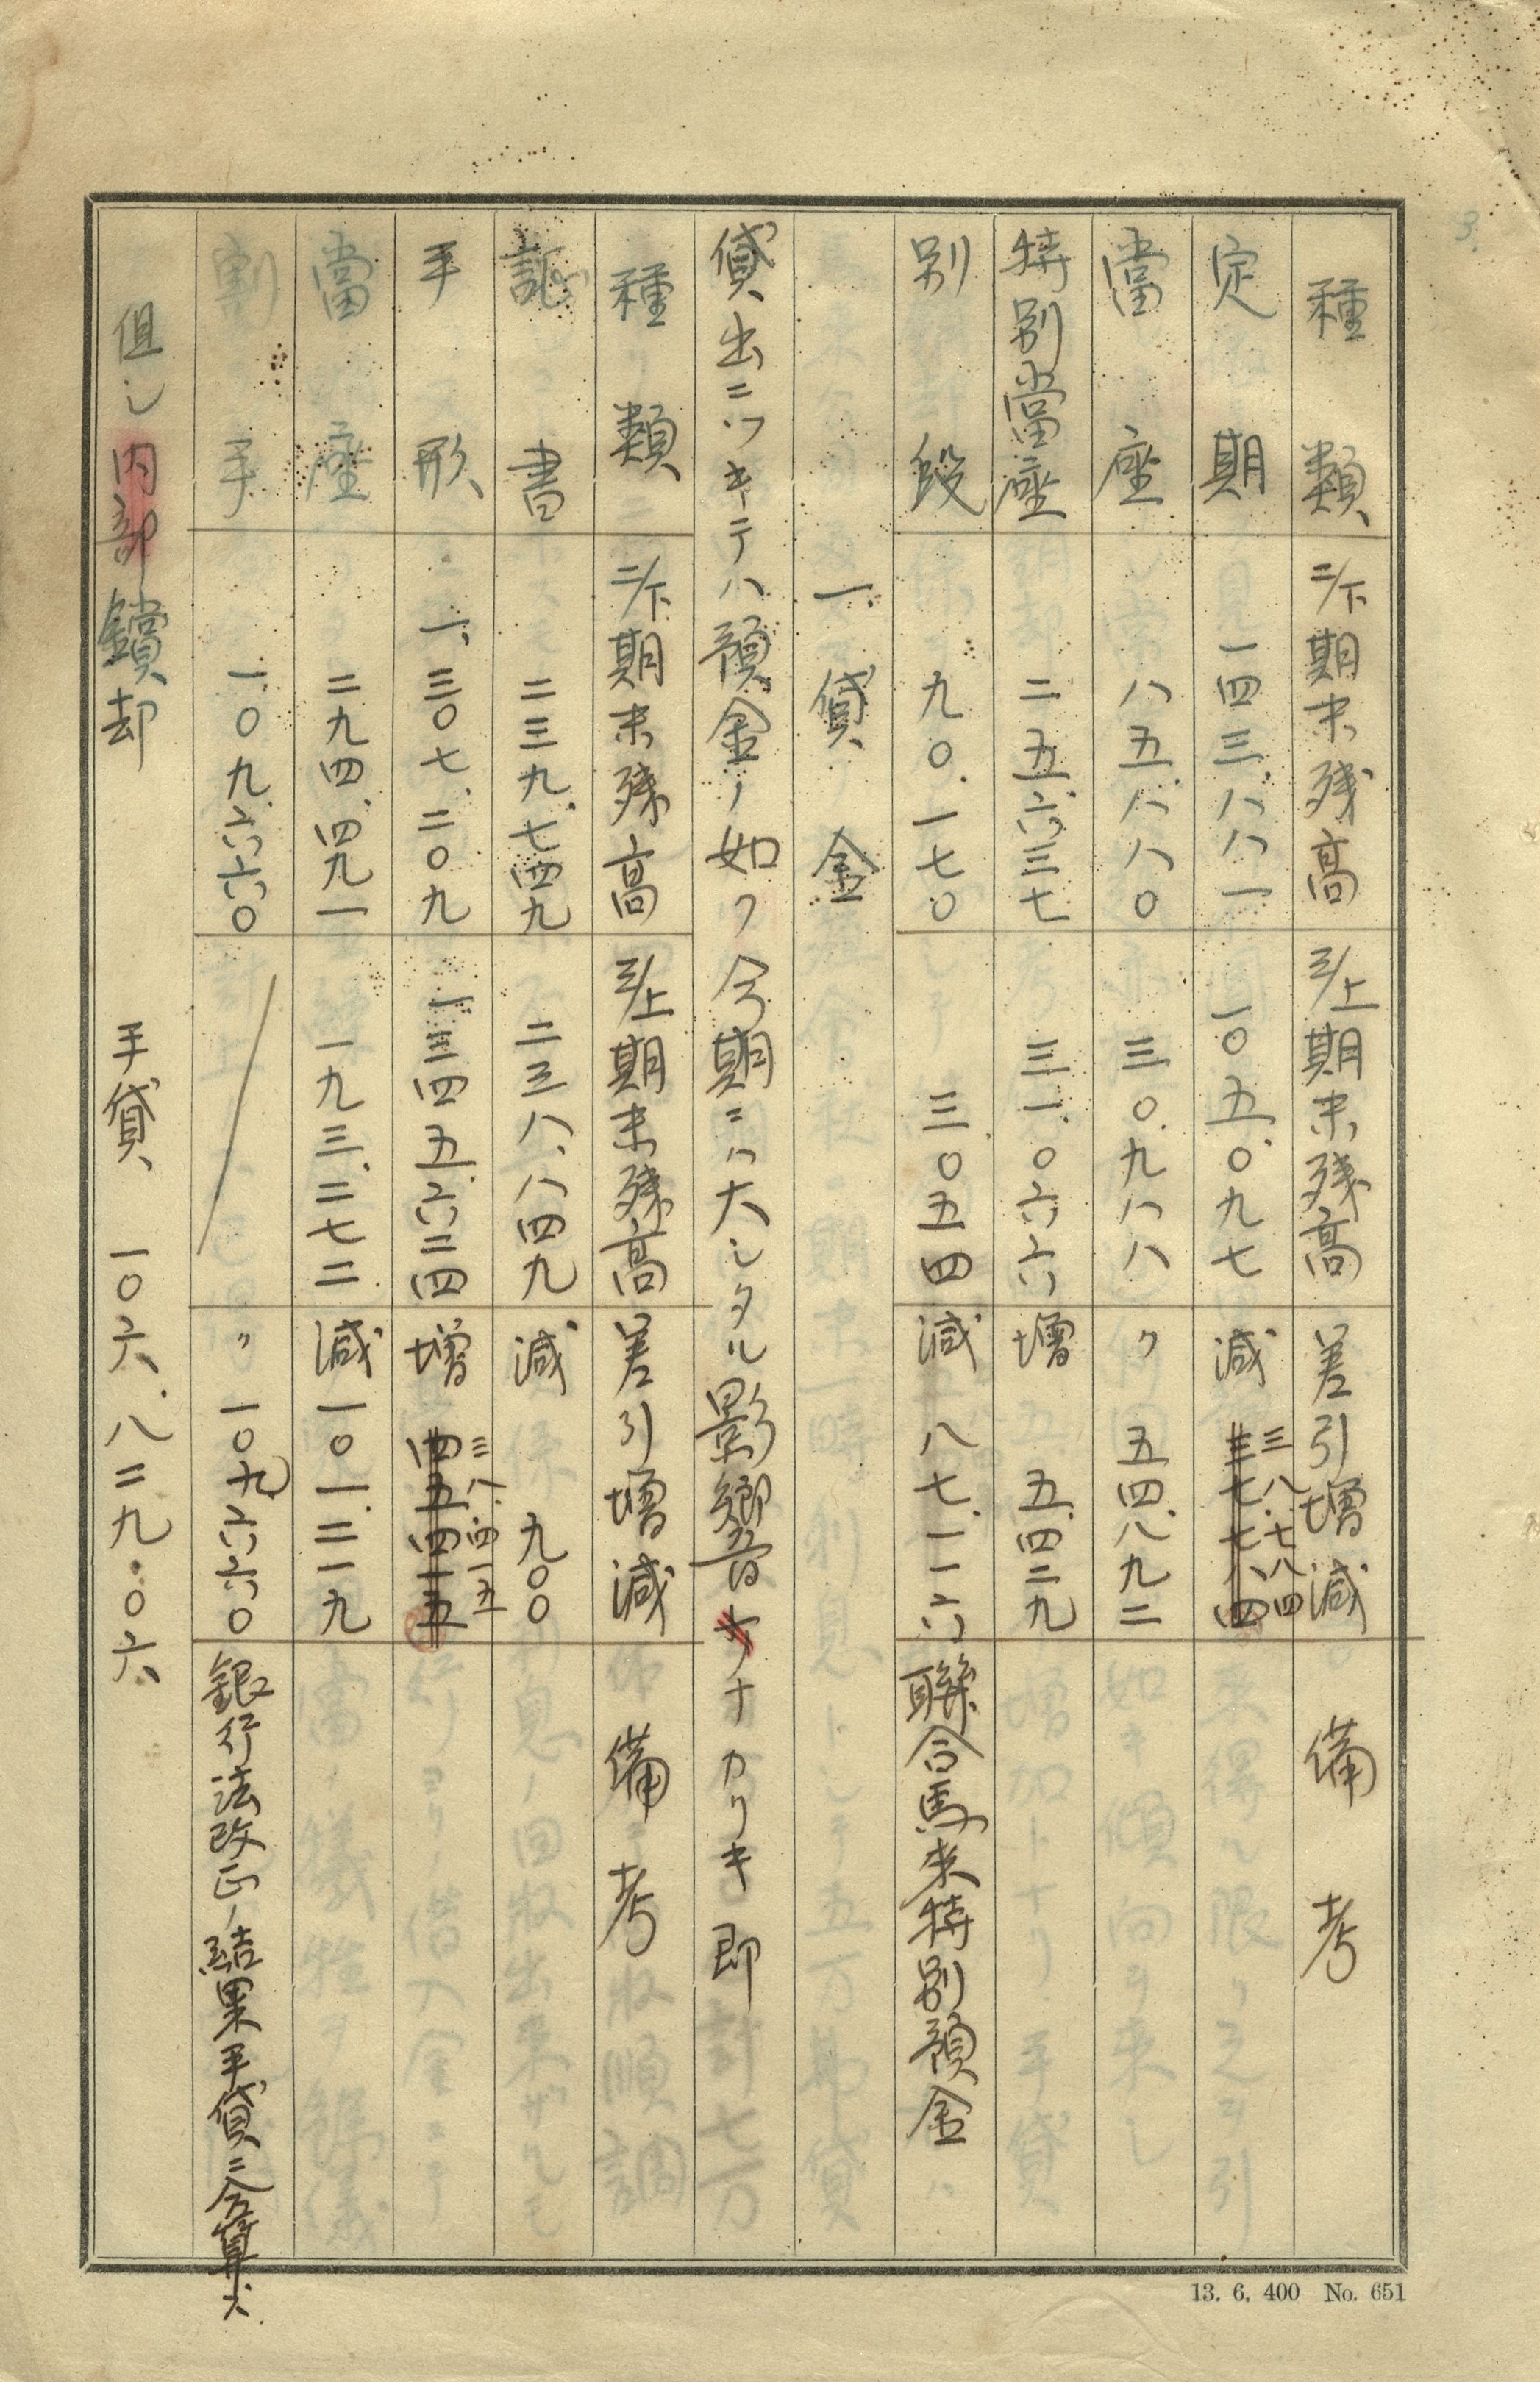 種類 二/下期末残高 三/上期末残高 差引増減 備考
定期 一四三.八八一 一〇五.〇九七 減 三八.七八四
當座 八五.八八〇 三〇.九八八 〃 五四.八九二
特別當座 二五.六三七 三一.〇六六 増 五.四二九
別段 九〇.一七〇 三.〇五四 減 八七.一一六 聯合馬来特別預金
一、貸金
貸出ニツキテハ預金ノ如ク今期ニハ大シタル影響ナカリキ即
種類 二/下期末残高 三/上期末残高 差引増減 備考
証書 二三九.七四九 二三八.八四九 減 九〇〇
手形 一、三〇七.二〇九 一三四五.六二四 増 三八.四一五
當座 二九四.四九一 一九三.二七二 減 一〇一.二一九
割手 一〇九.六六〇 〃 一〇九.六六〇 銀行法改正ノ結果手貸ニ合算ス.
但シ内部鎖却 手貸 一〇六.八二九.〇六
13. 6. 400 No. 651
3.